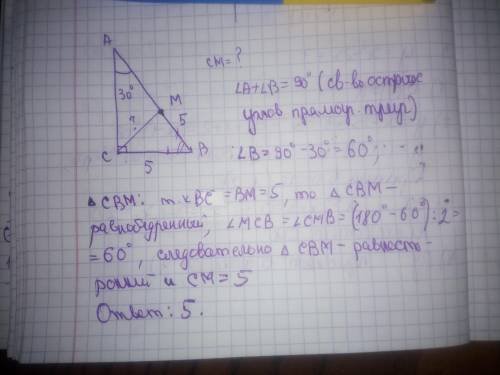 A
CM = ?
30°
∠A+∠B = 90° (св-во острых
M
углов прямоуг. треуг.)
?
5
∠B = 90° - 30° = 60°;
C
B
5
△ CBM: т.к BC = BM = 5, то △ CBM -
равнобедренный, ∠MCB = ∠CMB = (180° - 60°) : 2 =
= 60°, следовательно △ CBM - равносто-
ронний и CM = 5
Ответ: 5.